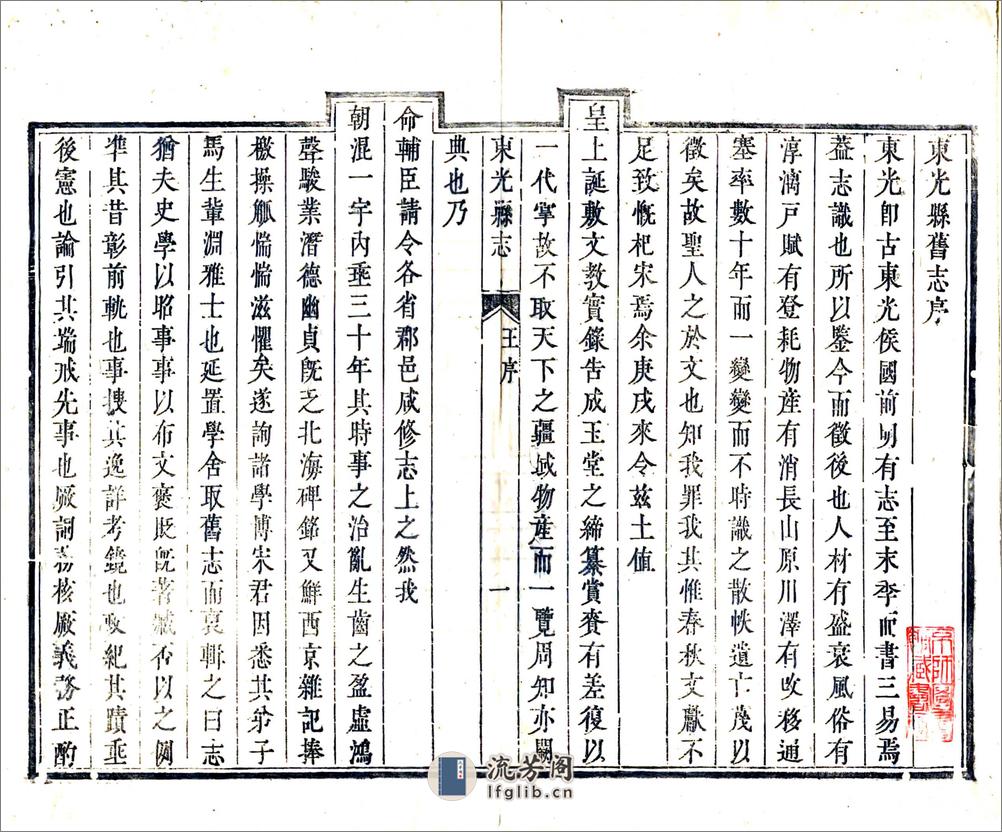 東光縣舊志序
東光卽古東光侯國前明有志至末季而書三易焉
葢志識也所以鑒今而徵後也人材有盛衰風俗有
淳漓戸賦有登耗物產有消長山原川澤有改移通
塞率數十年而一變變而不時識之散帙遺亡茂以
徵矣故聖人之於文也知我罪我其惟春秋文獻不
足致慨杞宋焉余庚戌來令茲土值
皇上誕敷文教實錄告成玉堂之締纂賞賚有差復以
一代寧故不取天下之疆域物產而一覽周知亦闕
東光縣志
王序
一
典也乃
命輔臣請令各省郡邑咸修志上之然我
朝混一宇內垂三十年其時事之治亂生齒之盈虛鴻
聲駿業潛德幽貞旣乏北海碑銘又鮮酉京雜記捧
檄操觚惴惴滋懼矣遂詢諸學博宋君因悉其弟子
馬生輩淵雅士也延置學舍取舊志而裒輯之曰志
猶夫史學以昭事事以布文褒貶旣著臧否以之閼
準其昔彰前軌也事搜其逸詳考鏡也政紀其蹟垂
後憲也論引其端戒先事也厥詞務核厥義務正酌
流芳阁
lfglib.cn